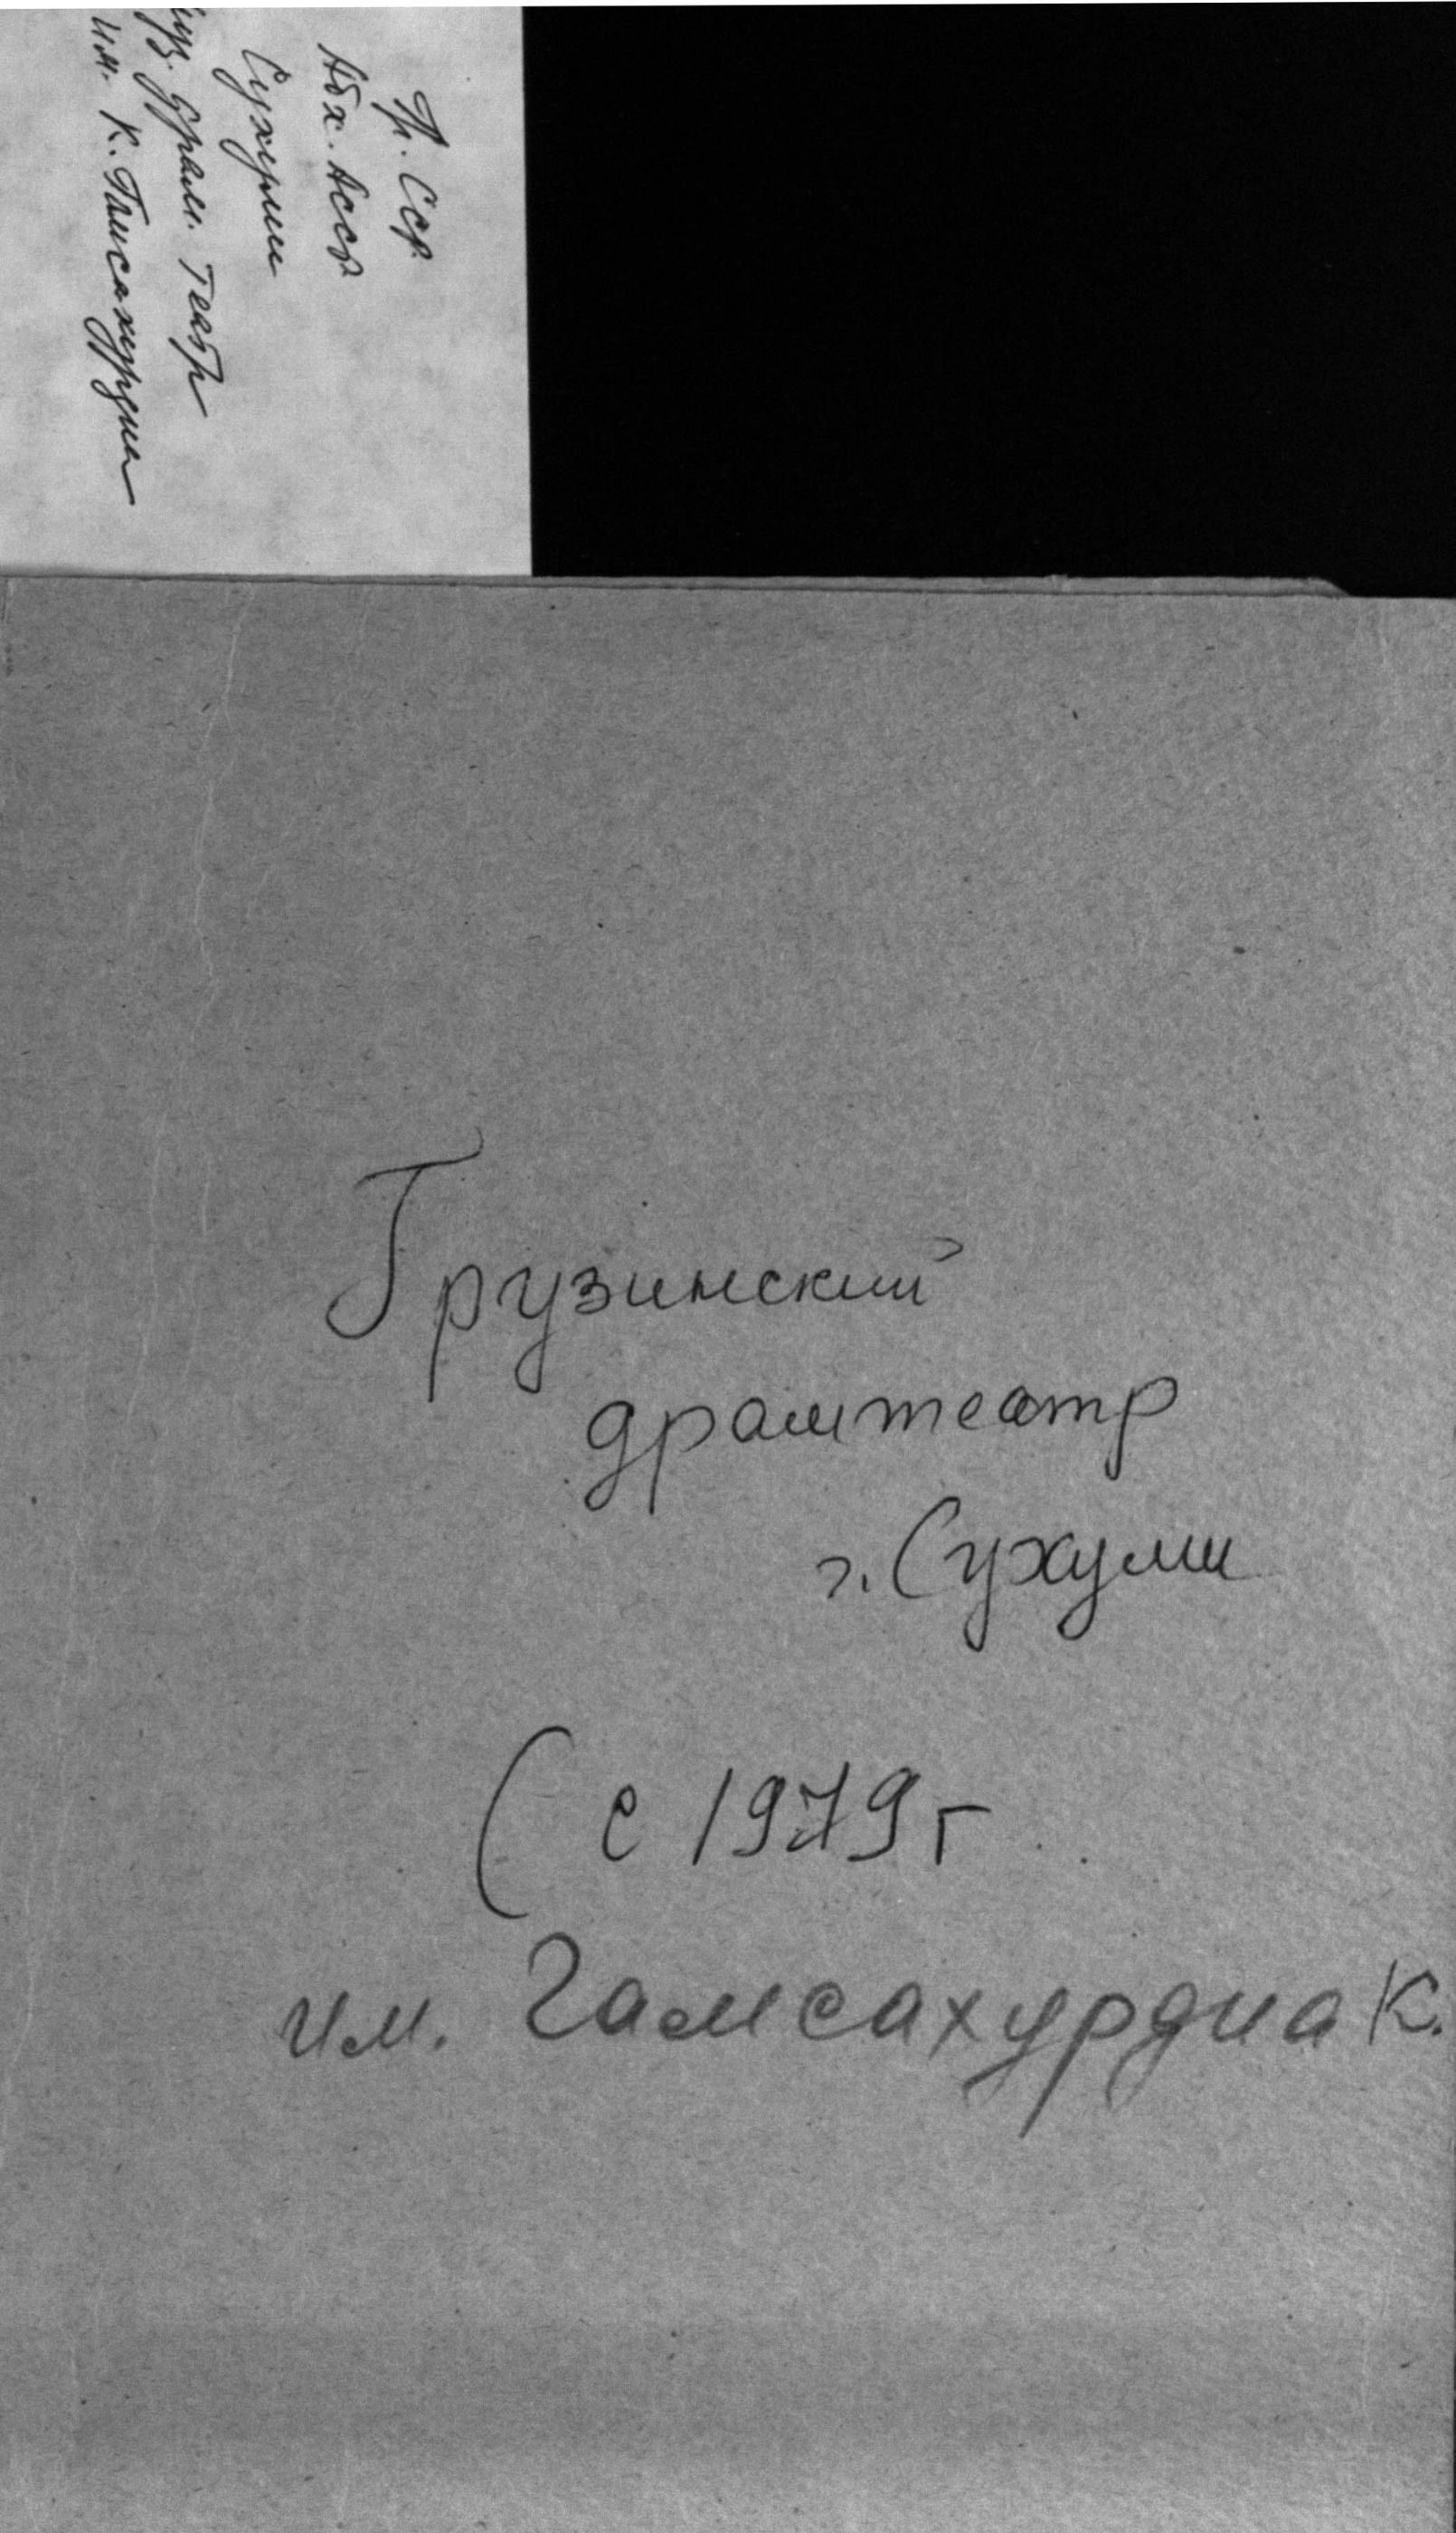 Гр. ССР
Абх. АССР
Сухуми
Груз. драм. театр
им. К. Гамсахурдиа
Грузинский
драмтеатр
г. Сухуми
( с 1979 г
им. Гамсахурдиа К.